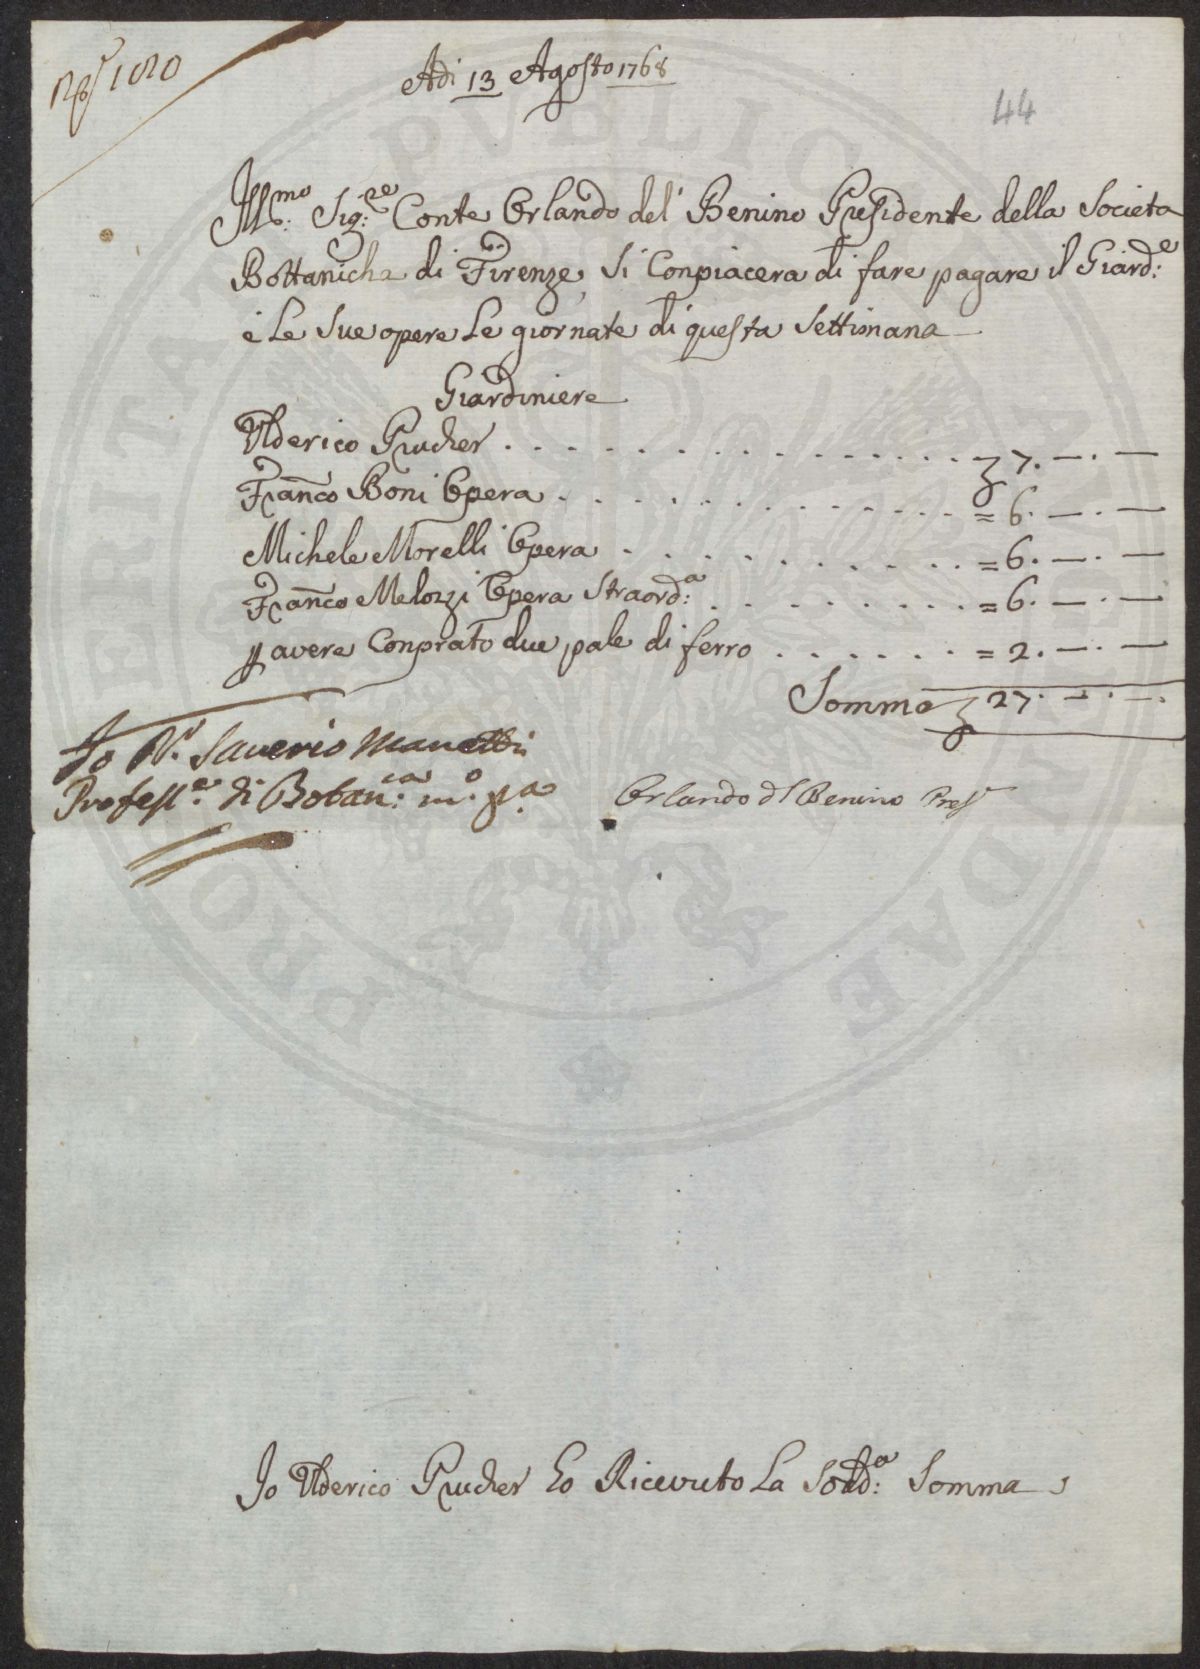 1010
Adi 13 Agosto 1768
44
Ill.mo Sig.re Conte Orlando del Benino Presidente della Societa
Bottanicha di Firenze, Si Conpiacera di fare pagare il Giard:e
e Le Sue opere Le giornate di questa Settimana
Giardiniere
Ulderico Prucher . . . . . . . . . . . . . . . . 7. — . —
Fran͠co Boni Opera . . . . . . . . . . . . . . = 6. — . —
Michele Morelli Opera . . . . . . . . . . . . = 6. — . —
Fran͠co Melozzi Opera Straord:a . . . . . . . . = 6. — . —
p avere Conprato due pale di ferro . . . . . . = 2. — . —
Somma 27. — . —
Io D.r Saverio Manetti
Profess.e di Botan:ca m.o p.a
Orlando dl Benino Pres
Io Ulderico Prucher ho Ricevuto La Sodd:a Somma
PROPRIETAS PVBLICA